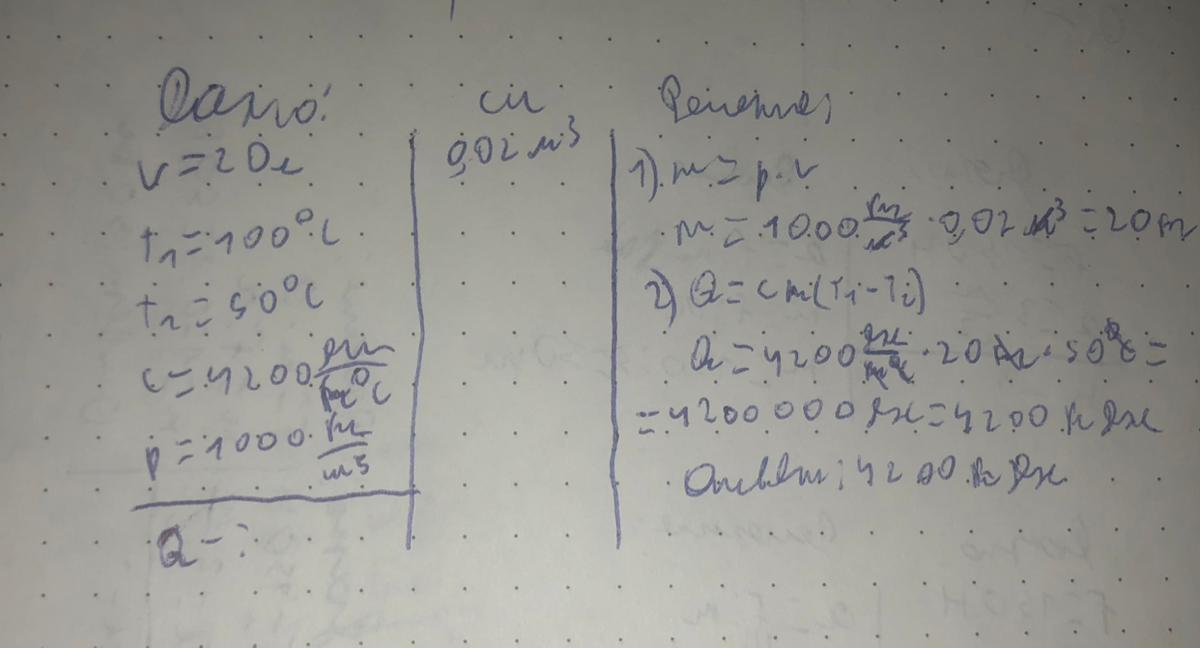 Дано:
V = 20 л
t₁ = 100°C
t₂ = 50°C
c = 4200 Дж/кг°C
p = 1000 кг/м³
Q - ?
СИ
0,02 м³
Решение:
1) m = p · v
m = 1000 кг/м³ · 0,02 м³ = 20 кг
2) Q = cm(T₁ - T₂)
Q = 4200 Дж/кг°C · 20 кг · 50°C =
= 4200 000 Дж = 4200 кДж
Ответ: 4200 кДж